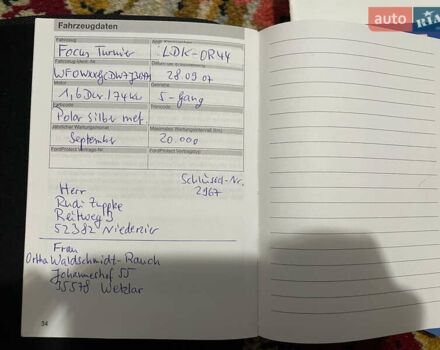 auto RIA
Fahrzeugdaten
Fahrzeug
Focus Turnier LDK-OR44
Fahrzeug-Ident.-Nr.
28.09.07
Motor Getriebe
1,6 Dur / 74 Kw 5-Gang
Farbcode
Polar silber met.
Jährlicher Wartungsmonat Maximales Wartungsintervall (km)
September 20.000
FordProtect Vertrags-Nr. FordProtect Vertragstyp
Schlüssel-Nr.
2967
Herr
Rudi Zuppke
Reitweg 9
52382 Niederzier
Frau
Ortha Waldschmidt-Rauch
Johanneshof 55
35578 Wetzlar
34